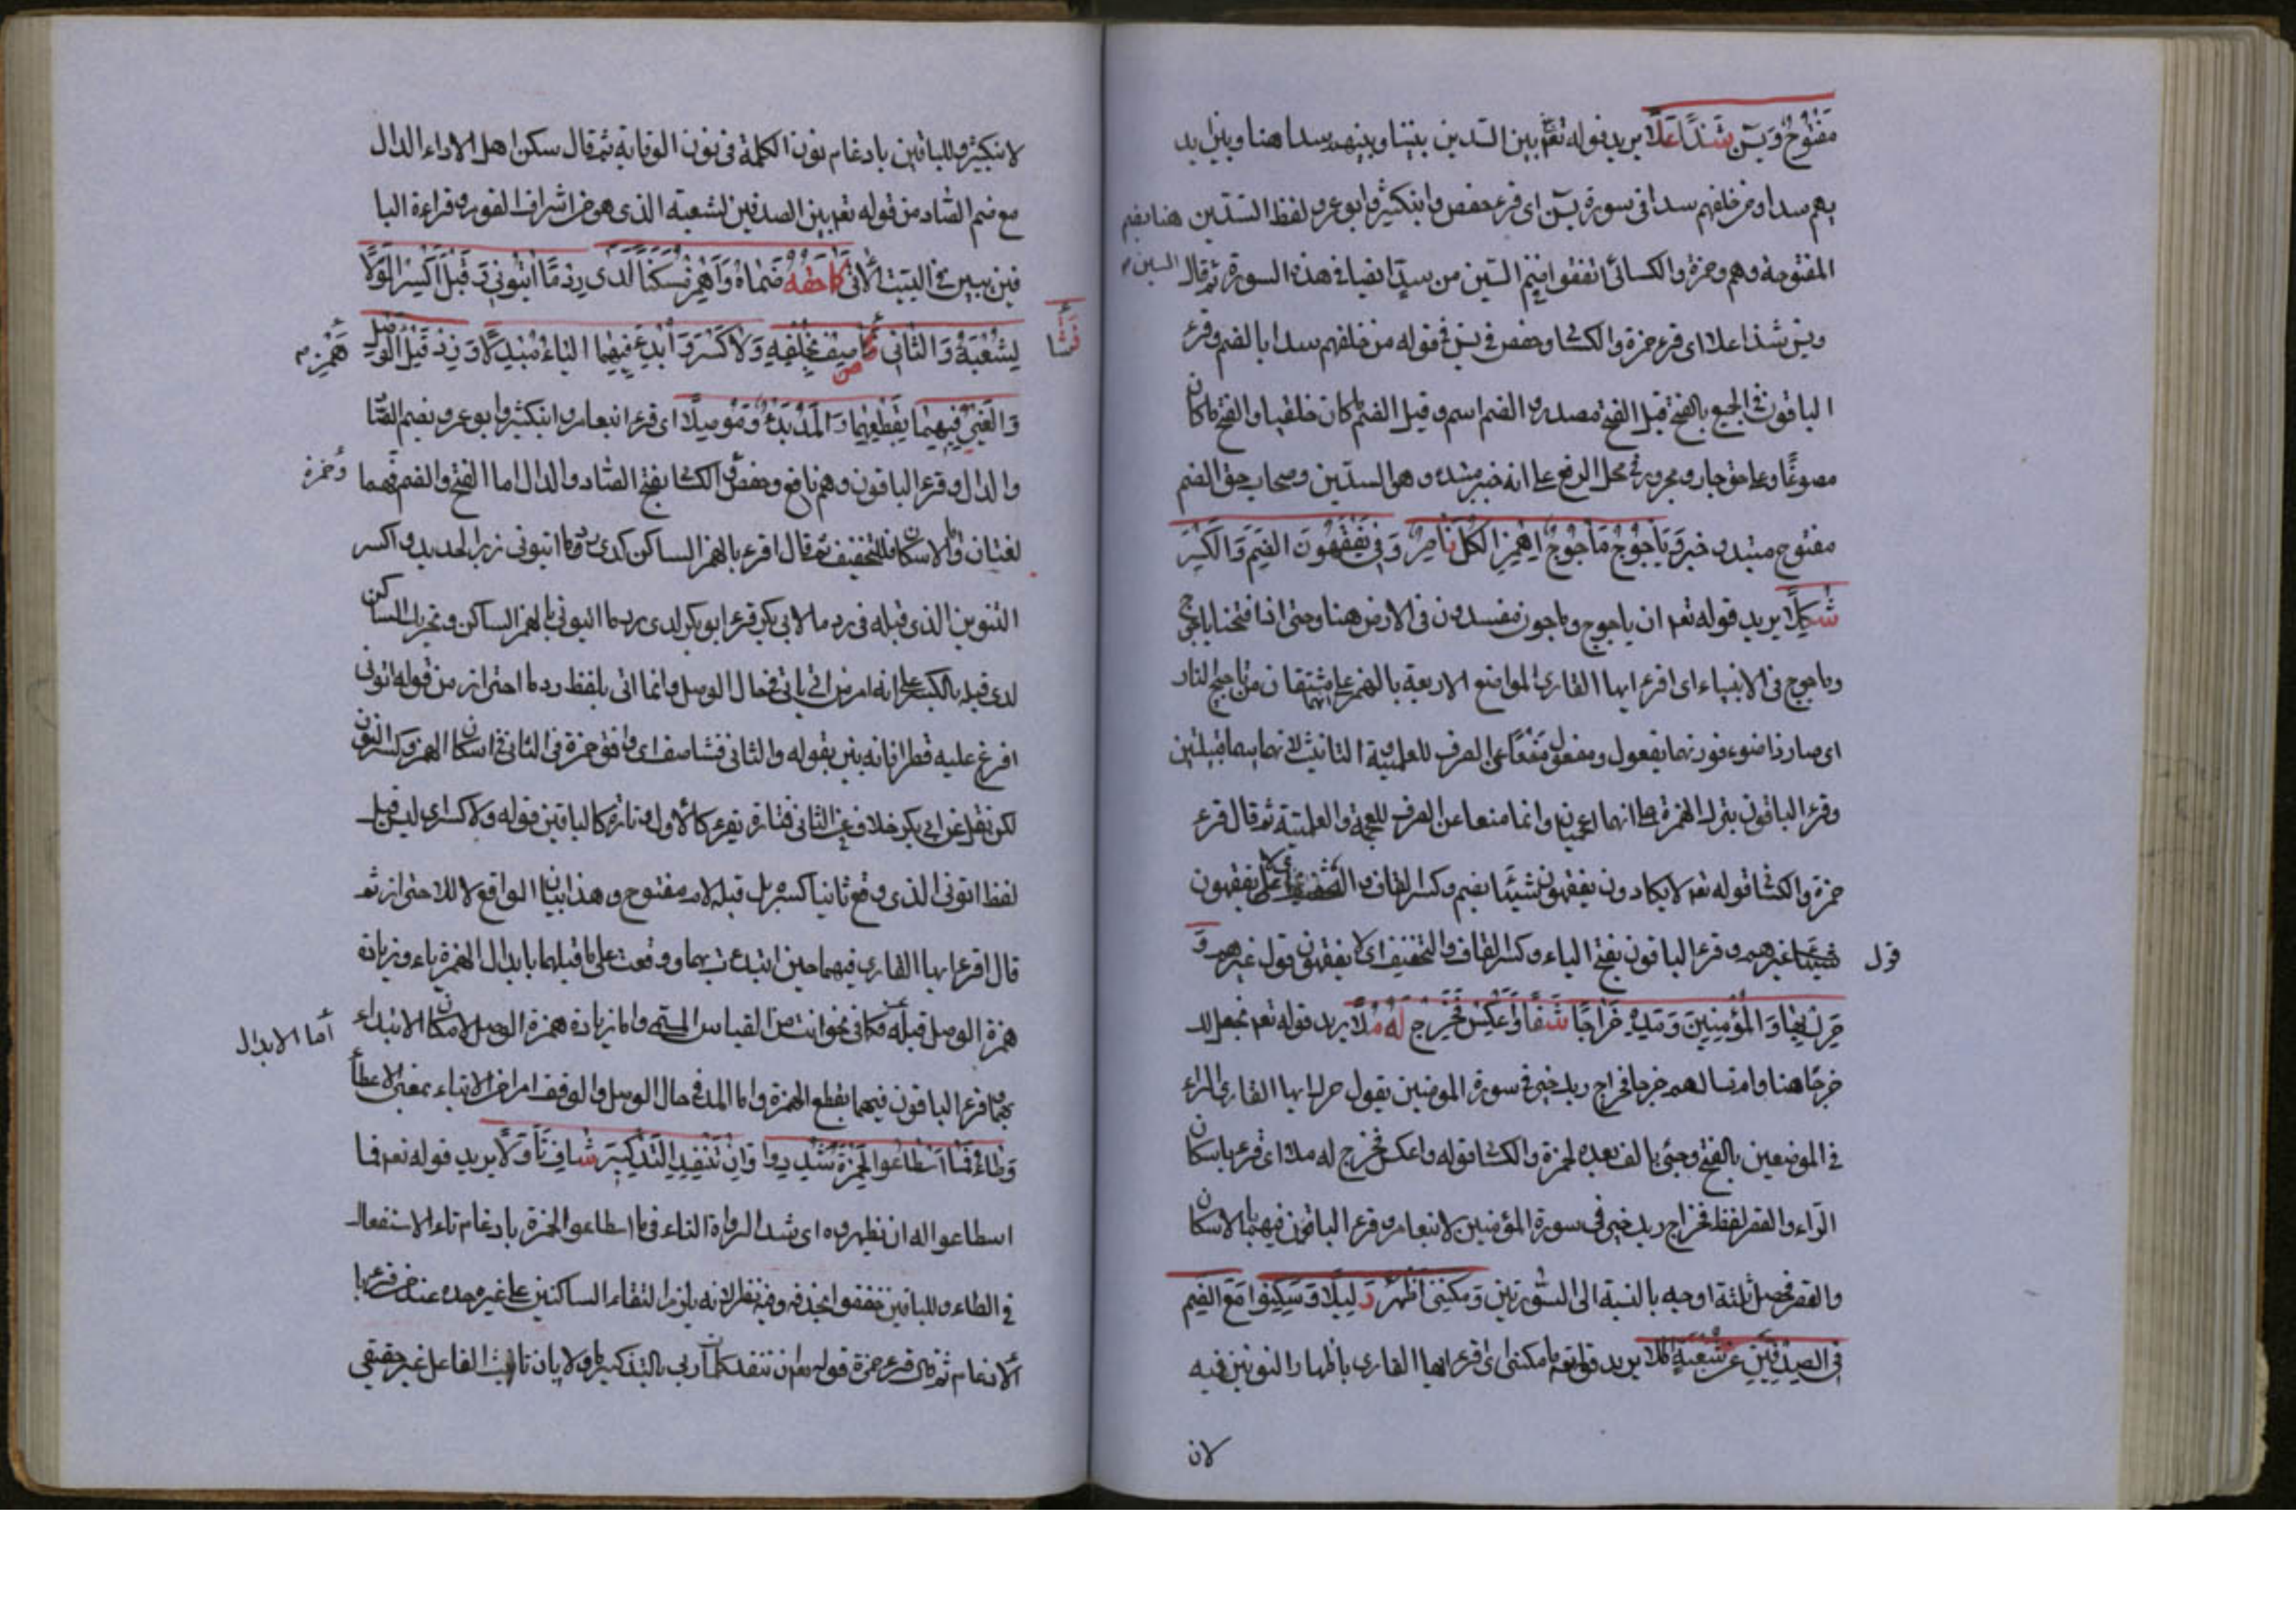 مَفْتُوحٌ وَيٰسٓ شَذًا عَلَا يريد قوله تعم بين السدين بيننا وبينهم سدا هنا وبين ايد
يهم سدا ومن خلفهم سدا فى سورة يٰسٓ اى قرء حفص وابنكثير وابو عمرو لفظ السدين هنا بفم
المفتوحة وهم وحمزة والكسائى اتفقوا فيضم السين من سدا ايضا فى هذه السورة ثم قال
السين
ويس شذا علا اى قرء حمزة والكسا وحفص فى يس فى قوله من خلفهم سدا بالضم وقرء
الباقون فى الجميع بالفتح قبل الفتح مصدر والضم اسم وقيل الضم ما كان خلقيا والفتح ما كان
مصوغا وعلى حق جار ومجرور فى محل الرفع على انه خبر مبتدء وهو السدين وصحاب حق الضم
مفتوح مبتدء وخبر وَيَأْجُوجُ مَأْجُوجُ اهْمِزِ الْكُلَّ نَاصِرٌ وَفِى يَفْقَهُونَ الضَّمَّ وَالْكَسْرَ
شُكِّلَا يريد قوله تعم ان ياجوج وماجوج مفسدون فى الارض هنا وحتى اذا فتحنا ياجوج
وماجوج فى الانبياء اى اقرء ايها القارى المواضع الاربعة بالهمز على انهما مشتقان من تاجج النار
اى صار ذا ضوء فوزنهما يفعول ومفعول منعا عن الصرف للعلمية والتانيث لانهما اسما قبيلتين
وقرء الباقون بترك الهمزة على انهما اعجميان وانما منعا عن الصرف للعجمة والعلمية ثم قال قرء
حمزة والكسا قوله تعم لا يكادون يفقهون شيئا بضم وكسر القاف يفقهون
شيئا غيرهم وقرء الباقون بفتح الياء وكسر القاف والتخفيف اى لا يفقهون قول غيرهم وَ
قول
حَرِّكْ بِهَا وَالْمُؤْمِنِينَ وَمُدَّهُ خَرَاجًا شَفَا وَاعْكِسْ فَخَرْجُ لَهُ مُلَا يريد قوله تعم نجعل لك
خرجا هنا وام تسالهم خرجا فخراج ربك خير فى سورة المومنين يقول حرك ايها القارى الراء
فى الموضعين بالفتح وجئ بالف بعده لحمزة والكسا قوله واعكس فخرج له ملا اى اقرء باسكان
الراء والقصر لفظ فخراج ربك خير فى سورة المؤمنين لابنعامر وقرء الباقون فيهما بالاسكان
والقصر فحصل ثلثة اوجه بالنسبة الى السورتين وَمَكَّنَنِى أَظْهِرْ دَلِيلًا وَسَكِّنُوا مَعَ الضَّمِّ
فى الصُّدْفَيْنِ عَنْ شُعْبَةَ الْمَلَا يريد قوله تعم ما مكننى اى اقرء ايها القارى باظهار النونين فيه
لان
لابنكثير وللباقين بادغام نون الكلمة فى نون الوقاية ثم قال سكن اهل الاداء الدال
مع ضم الصاد من قوله تعم بين الصدفين لشعبة الذى هو من اشراف القوم وقراءة البا
قين يبين فى البيت الاتى كَمَا حَقُّهُ ضَمَّاهُ وَاهْمِزْ مُسَكِّنًا لَدَى رَدْمًا ائْتُونِى وَقَبْلُ اكْسِرِ الْوِلَا
لِشُعْبَةَ وَالثَّانِى فَشَا صِفْ بِخُلْفِهِ وَلَا كَسْرَ وَابْدَءْ فِيهِمَا الْيَاءَ مُبْدِلًا وَزِدْ قَبْلُ هَمْزَ الْوَصْلِ
فَشَا
وَالْغَيْرُ فِيهِمَا بِقَطْعِهِمَا وَالْمَدِّ بَدْءً وَمَوْصِلًا اى قرء ابنعامر وابنكثير وابو عمرو بضم الصاد
والدال وقرء الباقون وهم نافع وحفص والكسا بفتح الصاد والدال اما الفتح والضم فهما
وحمزة
لغتان واما الاسكان فللتخفيف ثم قال اقرء بالهمز الساكن لدى ردما ائتونى زبر الحديد واكسر
التنوين الذى قبله فى ردما لابى بكر قرء ابو بكر لدى ردما ائتونى بالهمز الساكن وتحريك الساكن
لدى قبله بالكسر على انه امر من اتى ياتى فى حال الوصل وانما اتى بلفظ ردما احتراز من قوله اتونى
افرغ عليه قطرا فانه بين بقوله والثانى فشا صف اى وافق حمزة فى الثانى فى اسكان الهمز وكسر التنوين
لكن نقل عن ابى بكر خلاف فى الثانى فتارة يقرء كالاول وتارة كالباقين قوله ولا كسر اى ليس قبل
لفظ اتونى الذى وقع ثانيا كسر بل قبله لام مفتوح وهذا بيان الواقع لا للاحتراز ثم
قال اقرء ايها القارى فيهما حين ابتدءت بهما ووقعت على ما قبلهما بابدال الهمزة ياء وزيادة
همزة الوصل قبله فكما فى نحو ائت من القياس المستمر واما زيادة همزة الوصل لامكان الابتداء
أما الابدال
بهما وقرء الباقون فيهما بقطع الهمزة واما المد فى حال الوصل والوقف امر من الايتاء بمعنى الاعطاء
وَطَاءَ فَمَا اسْطَاعُوا لِحَمْزَةَ شَدِّدُوا وَأَنْ تَنْفَدَ التَّذْكِيرُ شَافٍ تَأَوَّلَا يريد قوله تعم فما
اسطاعوا له ان تظهروه اى شدد الرواة الطاء فى ما اسطاعوا لحمزة بادغام تاء الاستفعال
فى الطاء وللباقين خففوا بحذفه وفيه نظر لانه يلزم التقاء الساكنين على غير حده عند من قرء با
لادغام ثم قال قرء حمزة قوله تعم ان تنفد كلمات ربى بالتذكير اولا لان تانيث الفاعل غير حقيقى